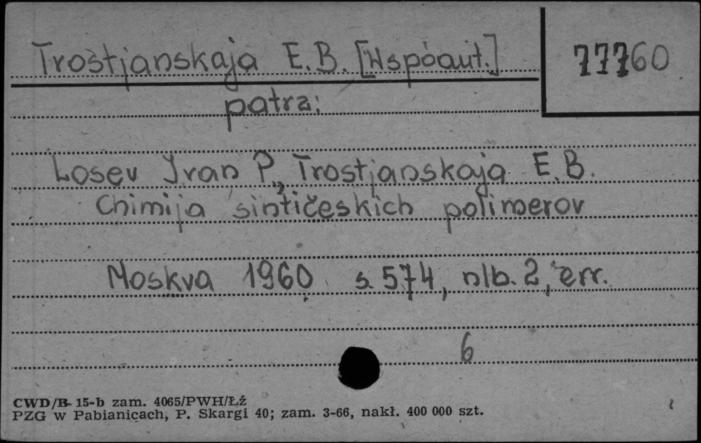 Trostjanskaja E.B. [Wspóaut.]
77760
patrz:
Losev Ivan P., Trostjanskaja E.B.
Chimija sintičeskich polimerov
Moskva 1960 s. 574, nlb. 2, err.
6
CWD/B-15-b zam. 4065/PWH/ŁŹ
PZG w Pabianicach, P. Skargi 40; zam. 3-66, nakł. 400 000 szt.